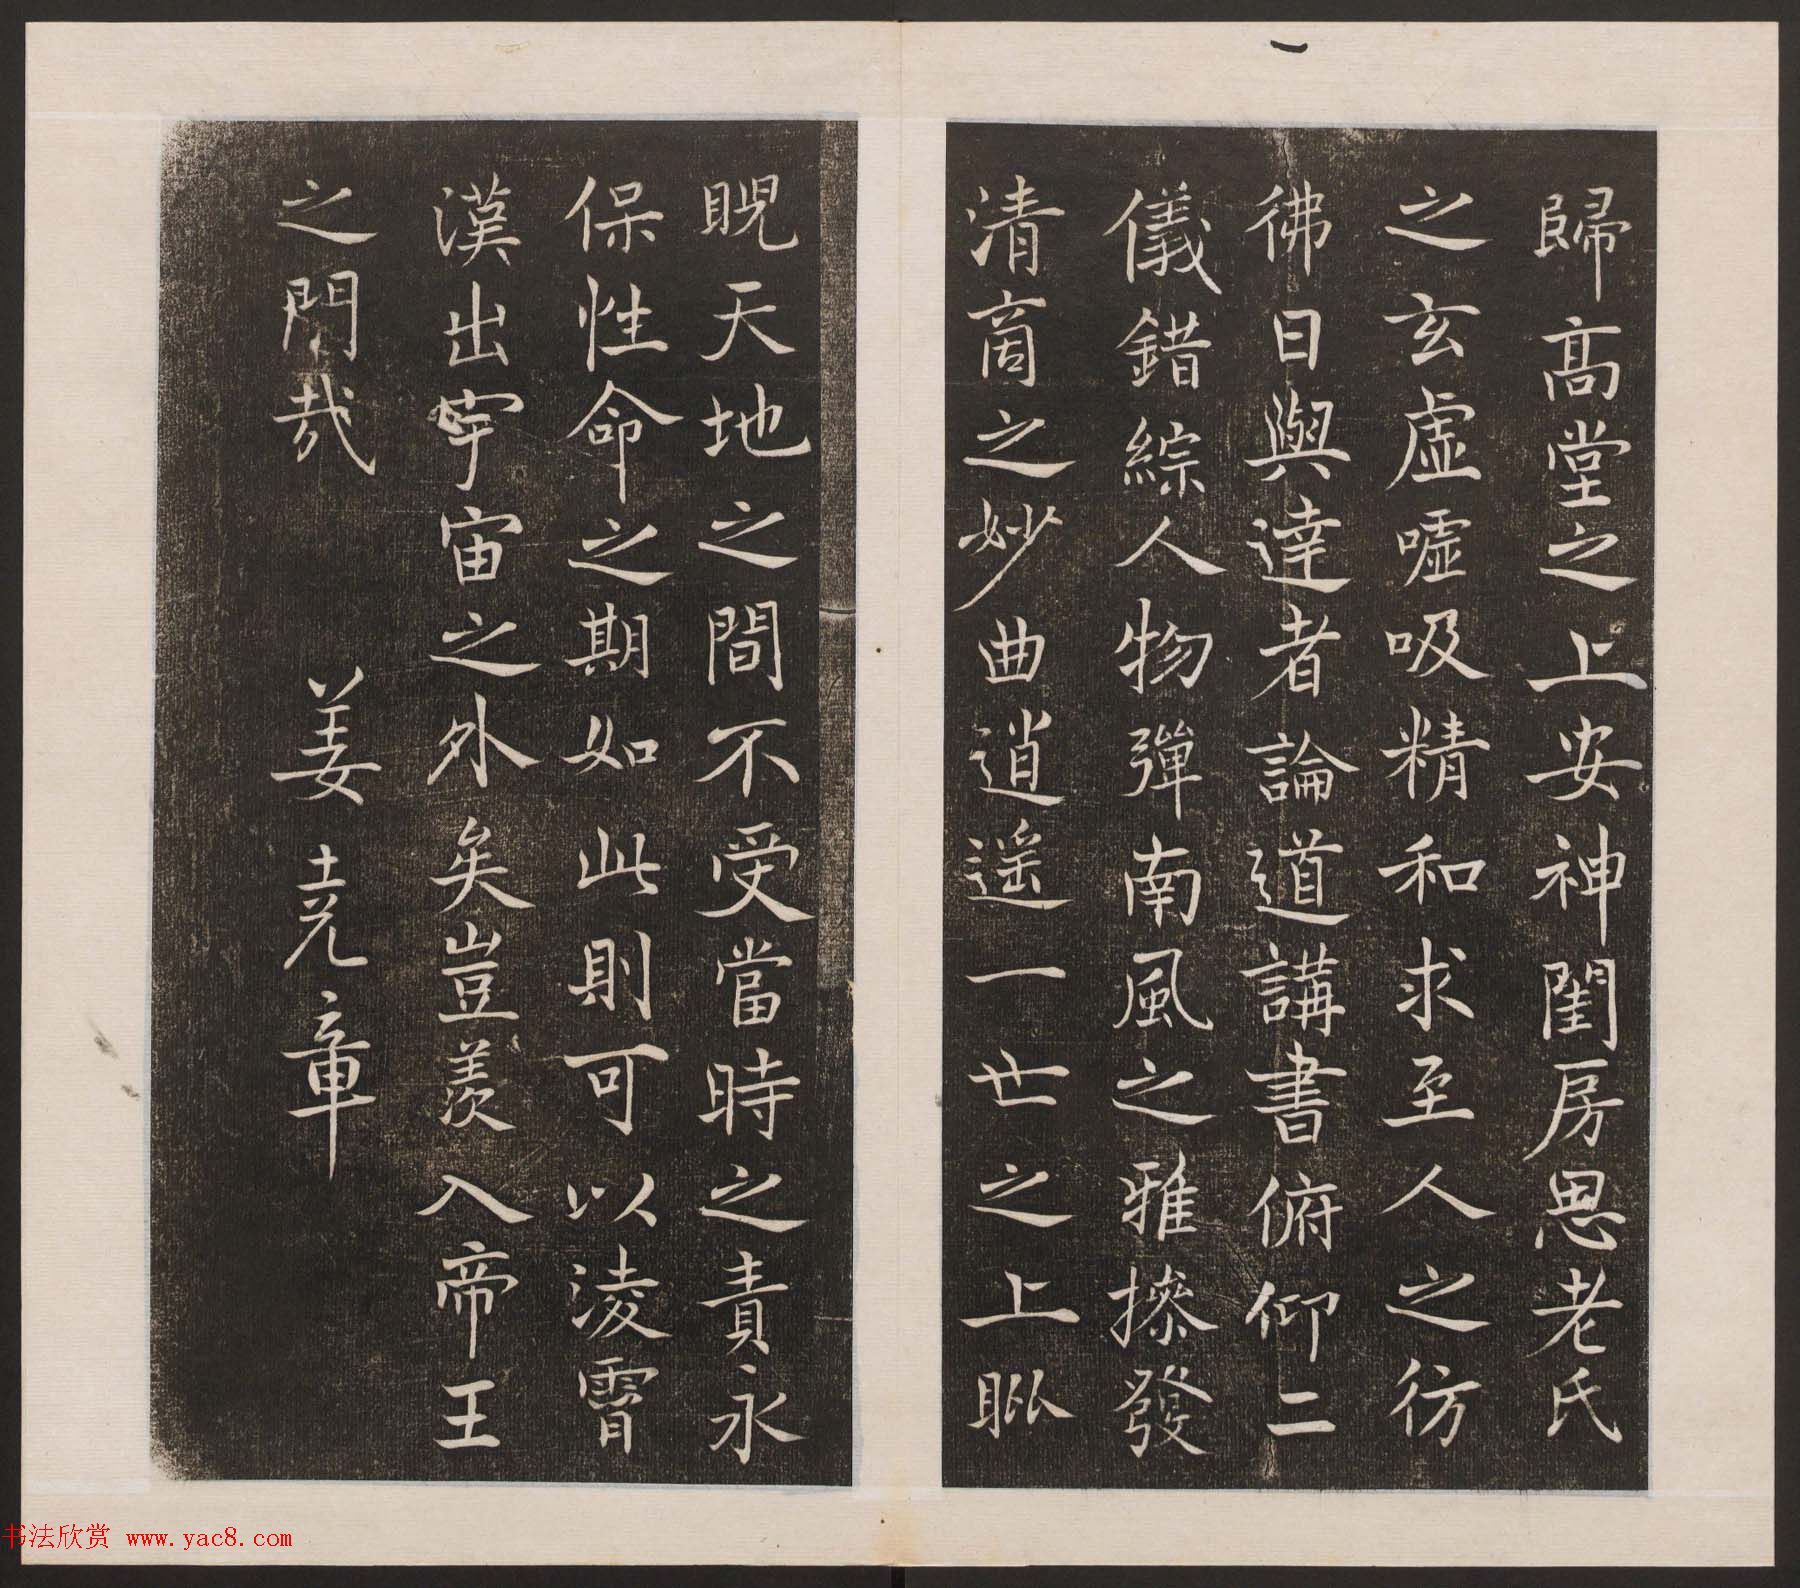 歸高堂之上安神閨房思老氏
之玄虛嘘吸精和求至人之彷
彿日與達者論道講書俯仰二
儀錯綜人物彈南風之雅操發
清商之妙曲逍遥一世之上睥
睨天地之間不受當時之責永
保性命之期如此則可以淩霄
漢出宇宙之外矣豈羨入帝王
之門哉　姜堯章
书法欣赏 www.yac8.com